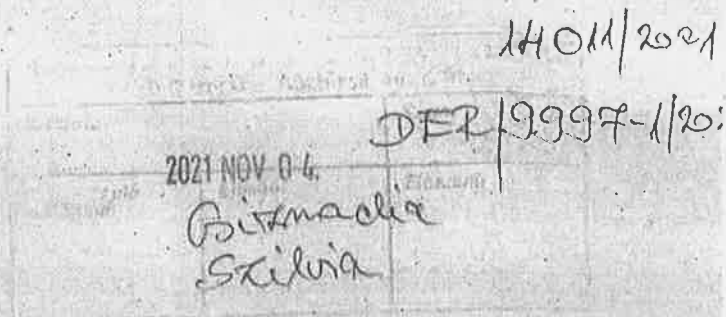 14011/2021
DER/9997-1/20
2021 NOV 04.
Csizmadia
Szilvia